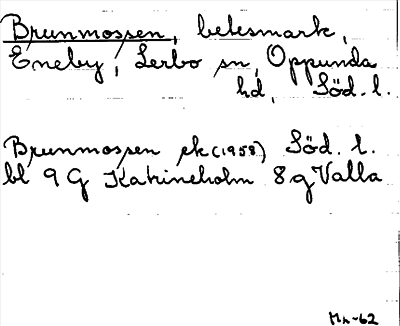 Brunmossen, betesmark,
Eneby, Lerbo sn, Oppunda
hd, Söd. l.
Brunmossen ek (1958) Söd. l.
bl 9 G Katrineholm 8 g Valla
Mn-62